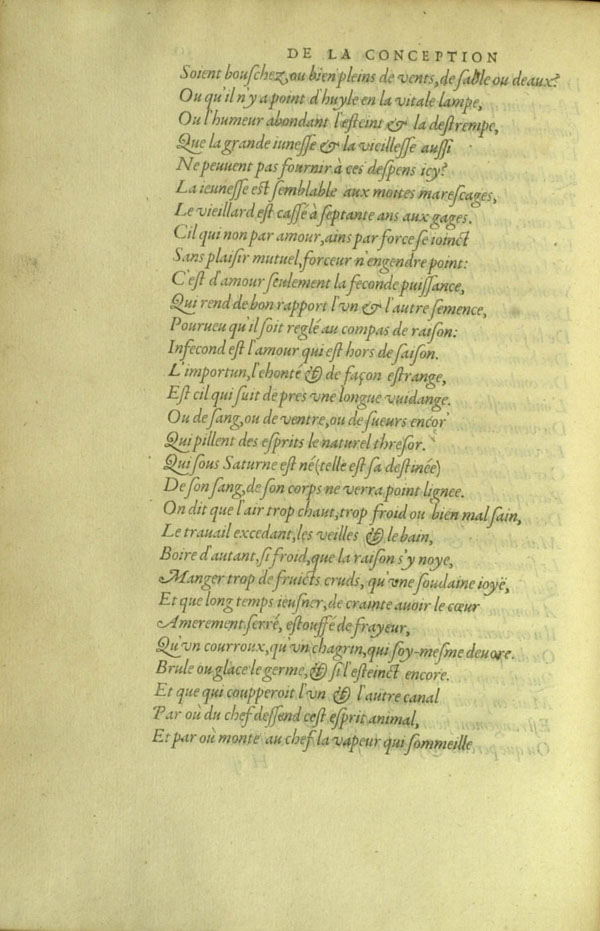 DE LA CONCEPTION
Soient bouſchez, ou bien pleins de vents, de ſable ou de aux?
Ou qu'il n'y a point d'huyle en la vitale lampe,
Ou l'humeur abondant l'eſteint & la deſtrempe,
Que la grande iuneſſe & la vieilleſſe auſſi
Ne peuuent pas fournir à ces deſpens icy?
La ieuneſſe eſt ſemblable aux mottes mareſcages,
Le vieillard eſt caſſé à ſeptante ans aux gages.
Cil qui non par amour, ains par force ſe ioinct
Sans plaiſir mutuel, forceur n'engendre point:
C'eſt d'amour ſeulement la feconde puiſſance,
Qui rend de bon rapport l'vn & l'autre ſemence,
Pourueu qu'il ſoit reglé au compas de raiſon:
Infecond eſt l'amour qui eſt hors de ſaiſon.
L'importun, l'ehonté & de façon eſtrange,
Eſt cil qui ſuit de pres vne longue vuidange.
Ou de ſang, ou de ventre, ou de ſueurs encor
Qui pillent des eſprits le naturel threſor.
Qui ſous Saturne eſt né (telle eſt ſa deſtinée)
De ſon ſang, de ſon corps ne verra point lignee.
On dit que l'air trop chaut, trop froid ou bien mal ſain,
Le trauail excedant, les veilles & le bain,
Boire d'autant, ſi froid, que la raiſon s'y noye,
Manger trop de fruicts cruds, qu'vne ſoudaine ioyë,
Et que long temps ieuſner, de crainte auoir le cœur
Amerement ſerré, eſtouffé de frayeur,
Qu'vn courroux, qu'vn chagrin, qui ſoy-meſme deuore.
Brule ou glace le germe, & ſi l'eſteinct encore.
Et que qui coupperoit l'vn & l'autre canal
Par ou du chef deſſend ceſt eſprit animal,
Et par où monte au chef la vapeur qui ſommeille